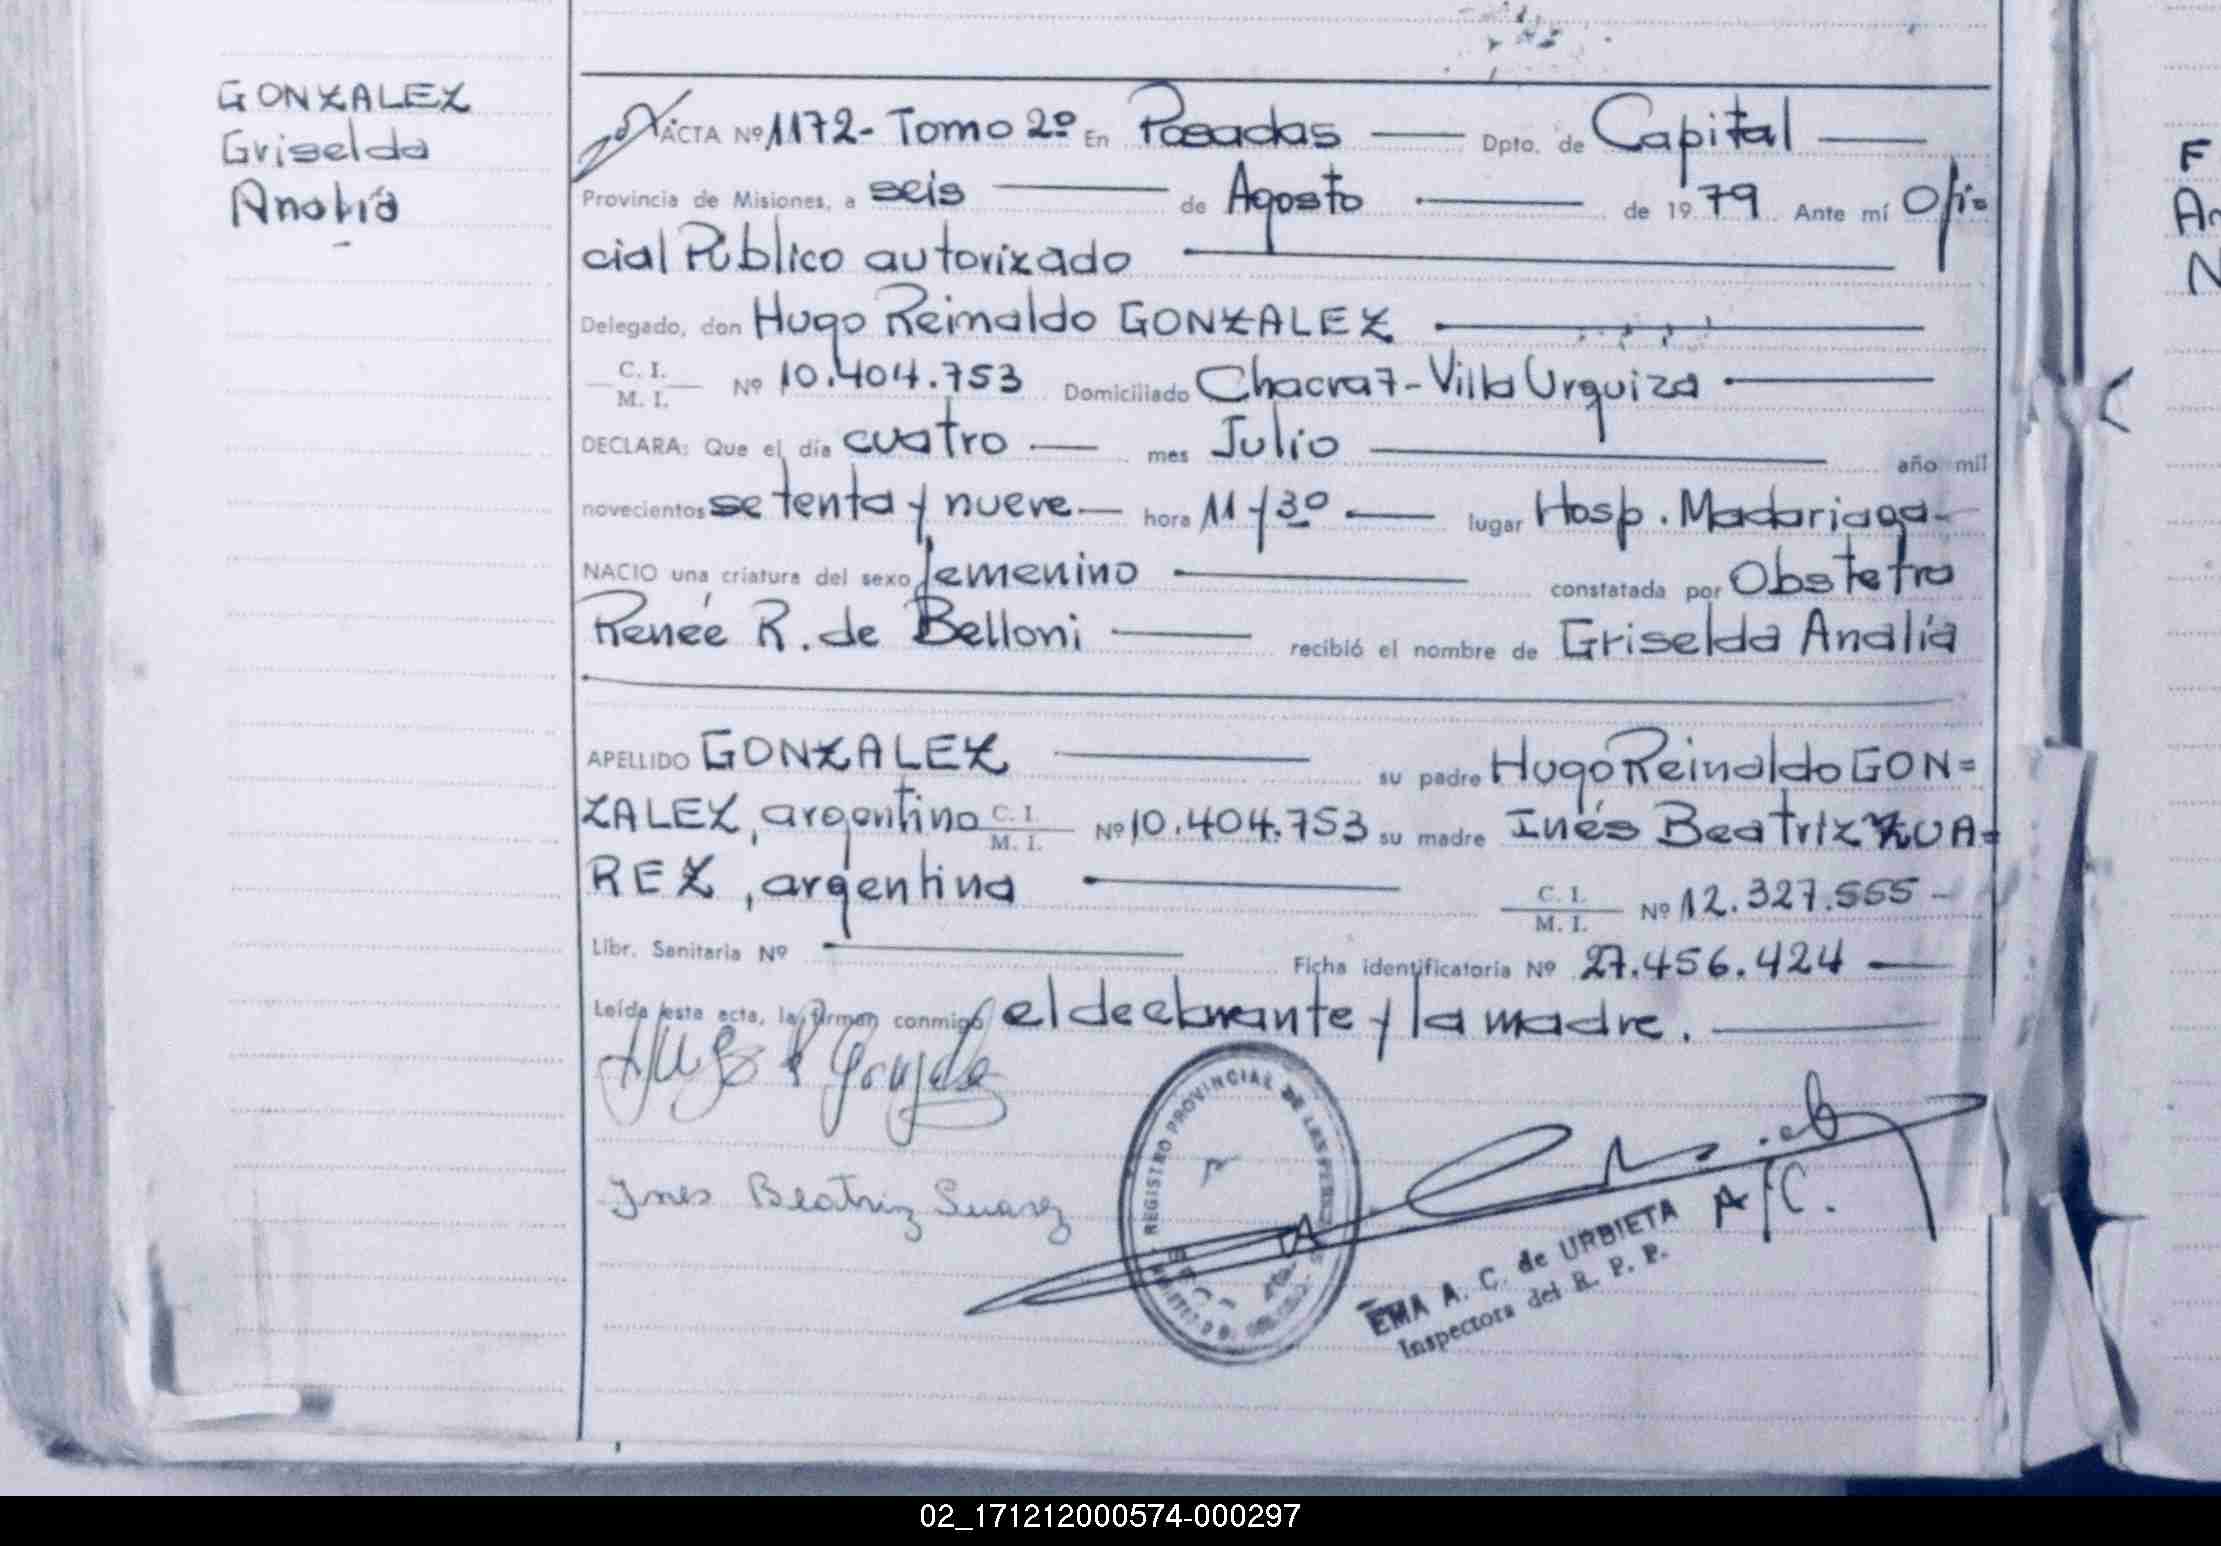 GONZALEZ
Griselda
Analía
ACTA Nº 1172- Tomo 2º En Posadas Dpto. de Capital
Provincia de Misiones, a seis de Agosto de 1979 Ante mí Ofi=
cial Público autorizado
Delegado, don Hugo Reinaldo GONZALEZ
C. I.
M. I. Nº 10.404.753 Domiciliado Chacra 7-Villa Urquiza
DECLARA: Que el día cuatro mes Julio año mil
novecientos setenta y nueve hora 11 y 30 lugar Hosp. Madariaga-
NACIO una criatura del sexo femenino constatada por Obstetra
Renée R. de Belloni recibió el nombre de Griselda Analía
APELLIDO GONZALEZ su padre Hugo Reinaldo GON=
ZALEZ, argentino C. I. M. I. Nº 10.404.753 su madre Inés Beatriz ZUA=
REZ, argentina C. I. M. I. Nº 12.327.555-
Libr. Sanitaria Nº Ficha identificatoria Nº 27.456.424
Leída esta acta, la firman conmigo el declarante y la madre.
Hugo R Gonzalez
Ines Beatriz Suarez
REGISTRO PROVINCIAL DE LAS PERSONAS
A/C.
EMA A. C. de URBIETA
Inspectora del R. P. P.
F
An
N
02_171212000574-000297